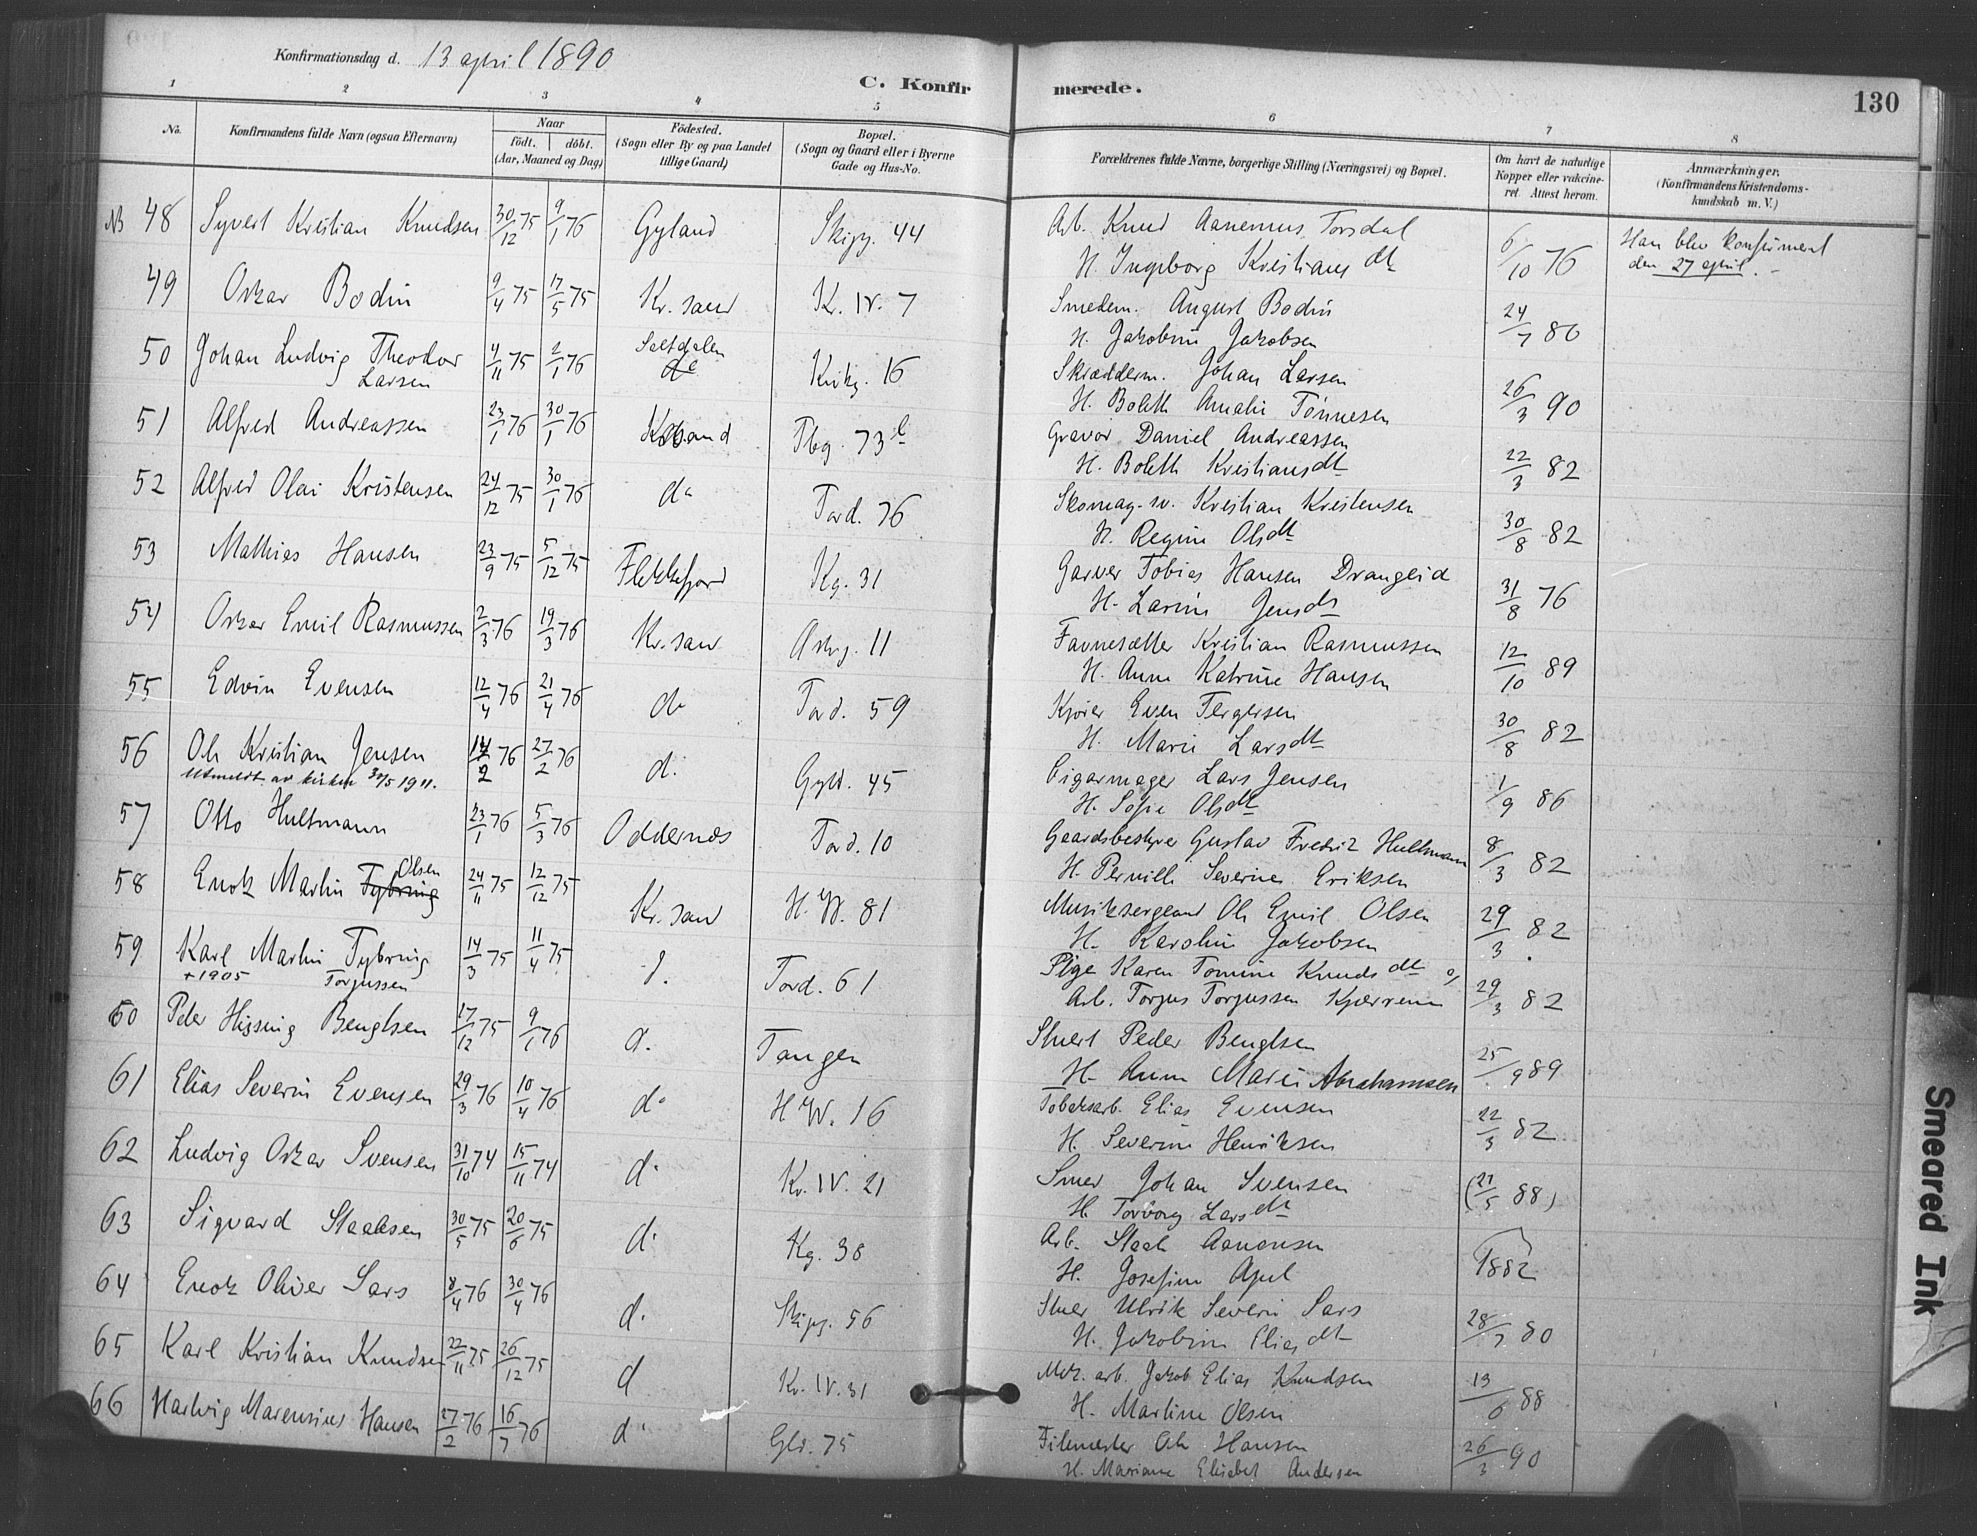 Konfirmationsdag d. 13 april 1890
C. Konfirmerede.
130
1 2 3 4 5 6 7 8
No.
Konfirmandens fulde Navn (ogsaa Efternavn)
Naar
født. døbt.
(Aar, Maaned og Dag)
Fødested.
(Sogn eller By og paa Landet
tillige Gaard)
Bopæl.
(Sogn og Gaard eller i Byerne
Gade og Hus-No.
Forældrenes fulde Navne, borgerlige Stilling (Næringsvei) og Bopæl.
Om havt de naturlige
Kopper eller vakcine-
ret. Attest herom.
Anmærkninger.
(Konfirmandens Kristendoms-
kundskab m. V.)
NB 48 Syvert Kristian Knudsen 30/12 75 9/1 76 Gyland Skipg. 44 Arb. Knud Aanensen Torsdal 6/10 76 Han blev konfirmert
H. Ingeborg Kristians dt den 27 april. -
49 Oskar Bodin 9/4 75 17/5 75 Kr. sand K. IV. 7 Smedem. August Bodin 24/7 80
H. Jakobine Jakobsen
50 Johan Ludvig Theodor 4/11 75 2/1 76 Saltdalen Kirkg. 16 Skrædderm. Johan Larsen 26/3 90
Larsen
H. Boleth Amalie Tønnesen
51 Alfred Andreassen 23/1 76 30/1 76 Krsand Tbg. 73 Graver Daniel Andreassen 22/3 82
H. Boleth Kristiansdt
52 Alfred Olai Kristensen 24/12 75 30/1 76 do Tord. 76 Skomag. sv. Kristian Kristensen 30/8 82
H. Regine Olsdt
53 Mathias Hansen 23/9 75 5/12 75 Flekkefjord Kg. 31 Garver Tobias Hansen Drangeid 31/8 76
H. Larine Jensdt
54 Oskar Emil Rasmussen 2/3 76 19/3 76 Kr. sand 11 Kristian Rasmussen 12/10 89
H. Anne Katrine Hansen
55 Edvin Evensen 12/4 76 21/4 76 do Tord. 59 Kjører Even Tergersen 30/8 82
H. Marie Larsdt
56 Ole Kristian Jensen 14/2 76 27/2 76 d. Gyld. 45 Cigarmager Lars Jensen 1/9 86
Utmeldt av kirken 30/5 1911.
H. Sofie Olsdt
57 Otto Hultmann 23/1 76 5/3 76 Oddernes Tord. 10 Gaardsbestyrer Gustav Fredrik Hultmann 8/3 82
H. Pernille Severine Eriksen
58 Enok Martin Tybring Olsen 24/11 75 12/12 75 Kr. sand H. W. 81 Musiksergeant Ole Emil Olsen 29/3 82
H. Karoline Jakobsen
59 Karl Martin Tybring 14/3 75 11/4 75 d. Tord. 61 Pige Karen Tomine Knuds dt og 29/3 82
+ 1905 Torjussen
Arb. Torjus Torjussen
60 Peder Hissing Bengtsen 17/12 75 9/1 76 d. Tangen Stuert Peder Bengtsen 25/9 89
H. Anne Marie Abrahamsen
61 Elias Severin Evensen 29/3 76 10/4 76 do H W. 16 Tobaksarb. Elias Evensen 22/3 82
H. Severine Henriksen
62 Ludvig Oskar Svensen 31/10 74 15/11 74 d. Kr. IV. 21 Smed Johan Svensen (21/5 88)
H. Torborg Larsdt
63 Sigvard Staalesen 30/5 75 20/6 75 d. Kg. 38 Arb. Staale Aanonsen 1882
H. Josefine Apel
64 Enok Oliver Sars 8/4 76 30/4 76 d. Skipg. 56 Stuer Ulrik Severin Sars 28/7 80
H. Jakobine Elias dt
65 Karl Kristian Knudsen 22/11 75 26/12 75 d Kr. IV. 31 Mek. arb. Jakob Elias Knudsen 13/6 88
H. Martine Olsen
66 Hartvig Marensius Hansen 27/2 76 16/7 76 d. Gld. 75 Ole Hansen 26/3 90
H. Mariane Elisabet Andersen
Smeared Ink